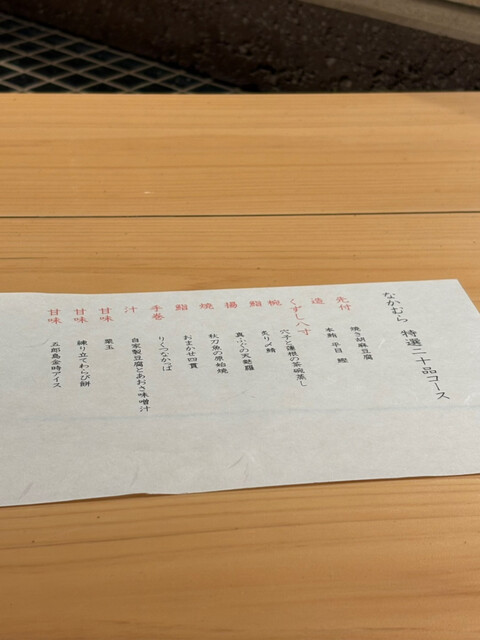 なかむら 特選二十品コース
先付 焼き胡麻豆腐
造 本鮪 平目 鰹
くずし八寸
椀 穴子と蓮根の茶碗蒸し
鮨 炙り〆鯖
揚 真ふぐの天麩羅
焼 秋刀魚の原始焼
鮨 おまかせ四貫
手巻 りくつなかっぱ
汁 自家製豆腐とあおさ味噌汁
甘味 栗玉
甘味 練り立てわらび餅
甘味 五郎島金時アイス